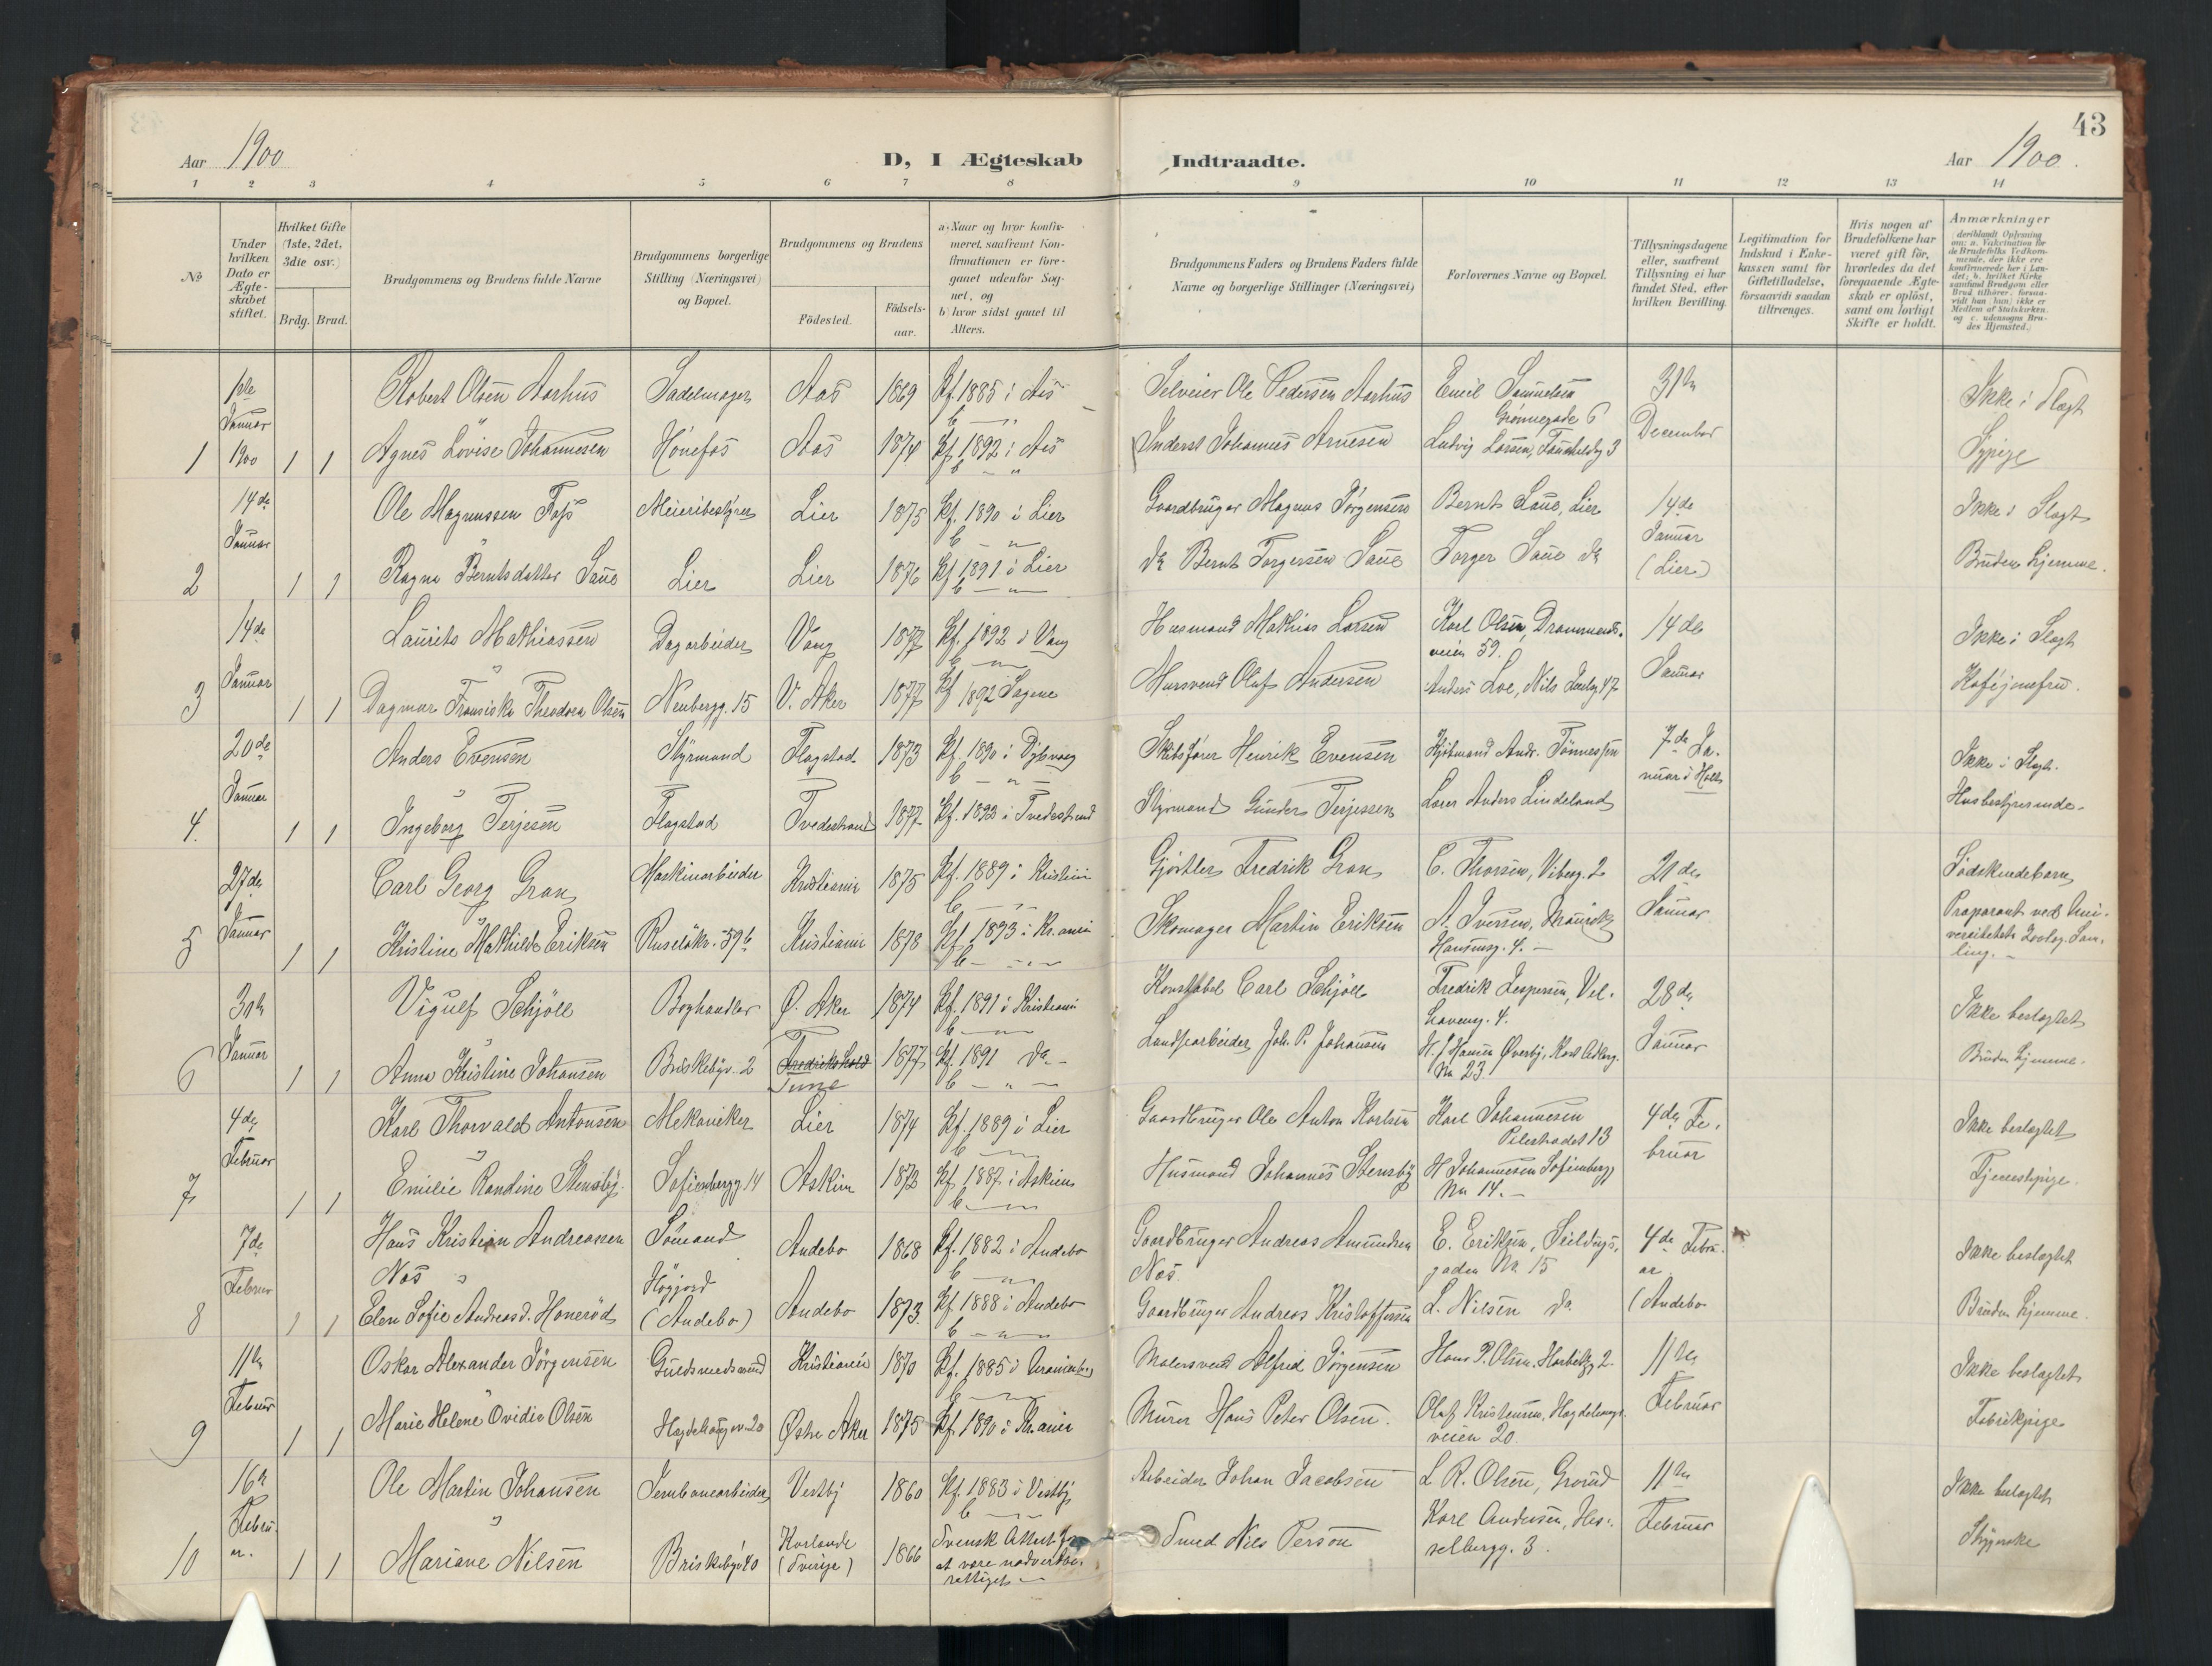 43
Aar 1900
D, I Ægteskab Indtraadte.
Aar 1900.
1 2 3 4 5 6 7 8 9 10 11 12 13 14
№
Under hvilken Dato er Ægteskabet stiftet.
Hvilket Gifte (1ste, 2det, 3die osv.)
Brdg. Brud.
Brudgommens og Brudens fulde Navne
Brudgommens borgerlige Stilling (Næringsvei) og Bopæl.
Brudgommens og Brudens
Födested.
Födselsaar.
a) Naar og hvor konfirmeret, saafremt Konfirmationen er foregaaet udenfor Sognet, og
b) hvor sidst gaaet til Alters.
Brudgommens Faders og Brudens Faders fulde Navne og borgerlige Stillinger (Næringsvei)
Forlovernes Navne og Bopæl.
Tillysningsdagene eller, saafremt Tillysning ei har fundet Sted, efter hvilken Bevilling.
Legitimation for Indskud i Enkekassen samt for Giftetilladelse, forsaavidt saadan tiltrænges.
Hvis nogen af Brudefolkene har været gift för, hvorledes da det foregaaende Ægteskab er oplöst, samt om lovligt Skifte er holdt.
Anmærkninger
(deriblandt Oplysning om: a. Vakcination for de Brudefolks Vedkommende, der ikke ere konfirmerede her i Landet; b. hvilket Kirkesamfund Brudgom eller Brud tilhörer, forsaavidt han (hun) ikke er Medlem af Statskirken, og c. udensogns Brudes Hjemsted.)
1ste Januar Robert Olsen Aarhus Sadelmager Aas 1869 Kf. 1885 i Aas Selveier Ole Pedersen Aarhus Emil Samuelsen Grønnegade 6 31te Ikke i Slægt
1 1900 1 1 Agnes Lovise Johannesen Hönefos Aas 1874 Kf. 1892 i Aas Inderst Johannes Arnesen Ludvig Larsen, 3 December Sypige
14de Januar Ole Magnussen Foss Meieribestyrer Lier 1875 Kf. 1890 i Lier Gaardbruger Magnus Jörgensen Bernt Saue, Lier 14de Januar Ikke i Slægt
2 1 1 Ragna Berntsdatter Saue Lier Lier 1876 Kf. 1891 i Lier do Bernt Torgersen Saue Torger Saue do (Lier) Brudens Hjemme.
14de Laurits Mathiassen Dagarbeider Vang 1877 Kf. 1892 i Vang Husmand Mathias Larsen Karl Olsen, Drammensveien 59. 14de Ikke i Slægt
3 Januar 1 1 Dagmar Fransiska Theodora Olsen Neubergg. 15 V. Aker 1877 Kf 1892 Sagene Mursvend Olaf Andersen Anders Loe, Nils 47 Januar Kaféjomfru.
20de Anders Evensen Styrmand Flagstad 1873 Kf. 1890 i Dybvaag Skibsfører Henrik Evensen Kjöbmand Andr. Tönnessen 7de Januar i Holt Ikke i Slægt.
4. Januar 1 1 Ingeborg Terjesen Flagstad Tvedestrand 1877 Kf. 1892 i Tvedestrand Styrmand Gunder Terjesen Lærer Anders Lindeland Husbestyrerinde.
27de Carl Georg Gran Maskinarbeider Kristiania 1875 Kf. 1889 i Kristiania Gjørtler Fredrik Gran C. Thorsen, Vibesg. 2 21de Södskendebarn
5 Januar 1 1 Kristine Mathilde Eriksen Ruselökv. 59b Kristiania 1878 Kf. 1893 i Kr.ania Skomager Martin Eriksen A. Iversen, Mauritz Hansensg. 4. Januar Præparant ved Universitetets Zoolog. Samling.
31te Vigulf Schjöll Boghandler Ø. Aker 1874 Kf. 1891 i Kristiania Konstabel Carl Schjöll Fredrik Jespersen, Vel-havensg. 4. 28de Ikke beslægtet
6 Januar 1 1 Anna Kristine Johansen Briskebyv. 2 Fredrikshald Tune 1877 Kf. 1891 do. Landsarbeider Joh. P. Johansen H. J. Hansen Øverby, No 23 Januar Brudens Hjemme.
4de Karl Thorvald Antonsen Mekaniker Lier 1874 Kf. 1889 i Lier Gaardbruger Ole Anton Karlsen Karl Johannesen Pilestrædet 13 4de Februar Ikke beslægtet
7 Februar 1 1 Emilie Randine Stensby Sofienbergg 14 Askim 1872 Kf. 1887 i Askim Husmand Johannes Stensby H Johannesen Sofienbergg No 14. Tjenestepige.
7de Hans Kristian Andreassen Næs Sömand Andebo 1868 Kf. 1882 i Andebo Gaardbruger Andreas Amundsen Næs. E. Eriksen, Skildugsgaden No 15 4de Februar. Ikke beslægtet
8 Februar 1 1 Elen Sofie Andreasd. Honeröd Högjord (Andebo) Andebo 1873. Kf. 1888 i Andebo Gaardbruger Andreas Kristoffersen L. Nilsen do. (Andebo Brudens Hjemme.
11te Oskar Alexander Jörgensen Guldsmedsvend Kristiania 1870 Kf. 1885 i Malersvend Alfred Jörgensen Hans P. Olsen. 2 11te Ikke beslægtet
9 Februar 1 1 Marie Helene Ovidia Olsen Hægdehaugsv. 20 Østre Aker 1875 Kf. 1890 i Kr.ania Murer Hans Peter Olsen. Olaf Kristensen, Hægdehaugsveien 20. Februar Fabrikpige
16de Ole Martin Johansen Jernbanearbeider Vestby 1860 Kf. 1883 i Vestby Arbeider Johan Jacobsen L. R. Olsen, Grorud 11te Ikke beslægtet
10 Februar. 1 1 Mariane Nilsen Briskebyv 40 (Sverige) 1866 Svensk Attest for at være nadverberettiget Smed Nils Person Karl Andersen, Hesselbergg. 3. Februar